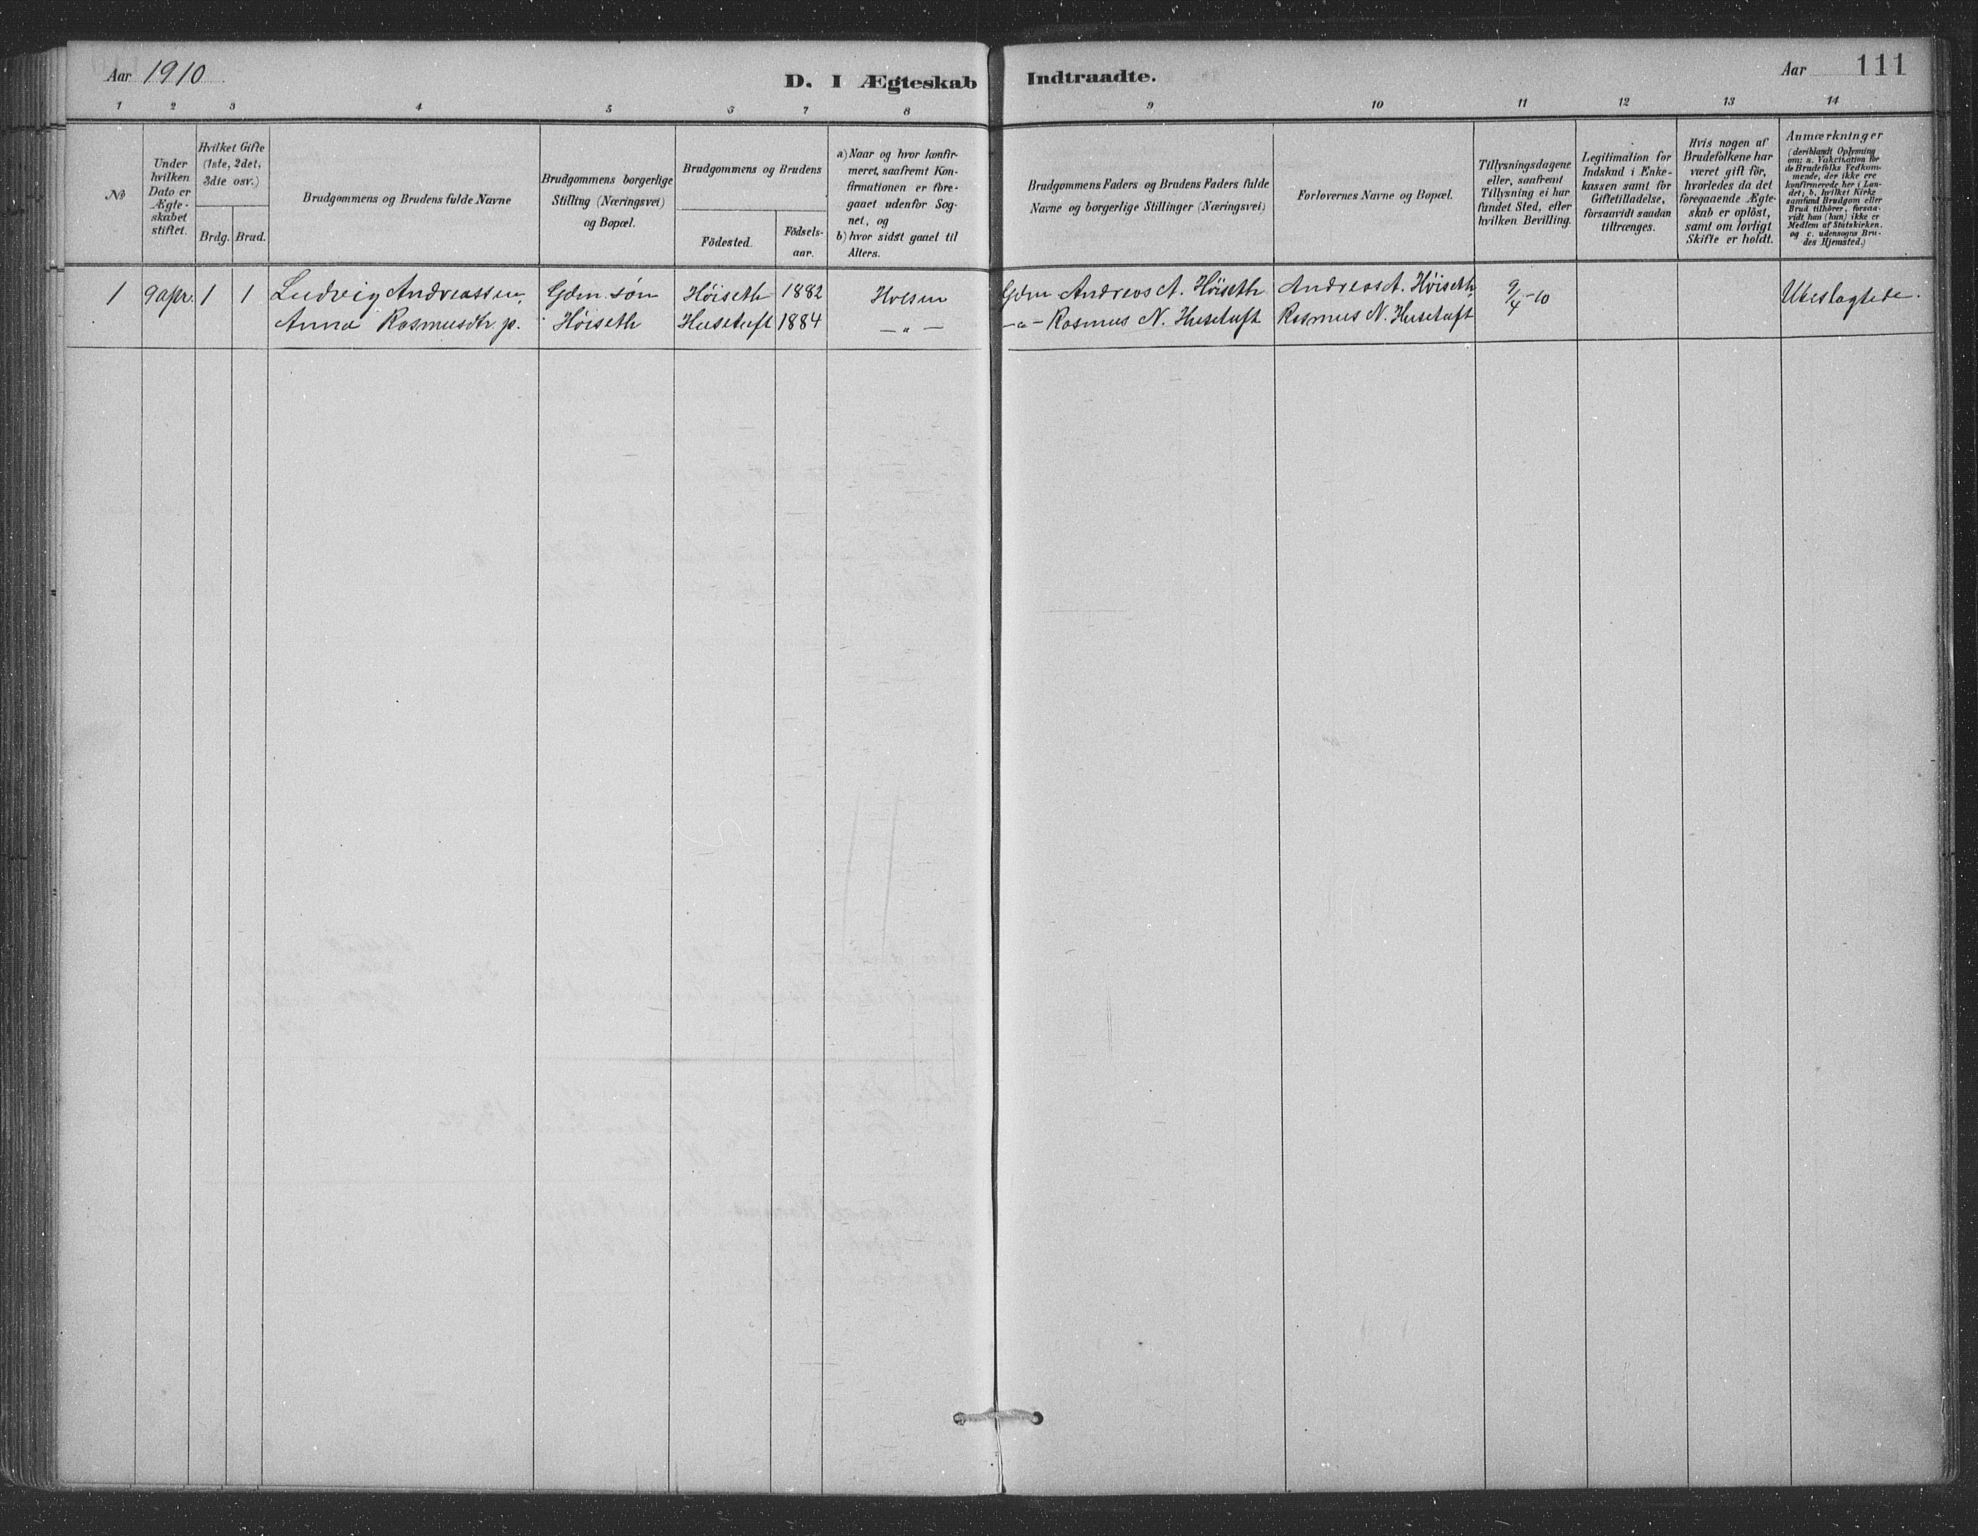 Aar 1910
D. I Ægteskab Indtraadte.
Aar 111
1 2 3 4 5 6 7 8 9 10 11 12 13 14
No
Under
hvilken
Dato er
Ægte-
skabet
stiftet.
Hvilket Gifte
(1ste, 2det,
3die osv.)
Brdg. Brud.
Brudgommens og Brudens fulde Navne
Brudgommens borgerlige
Stilling (Næringsvei)
og Bopæl.
Brudgommens og Brudens
Fødested.
Fødsels-
aar.
a) Naar og hvor konfir-
meret, saafremt Kon-
firmationen er fore-
gaaet udenfor Sog-
net, og
b) hvor sidst gaaet til
Alters.
Brudgommens Faders og Brudens Faders fulde
Navne og borgerlige Stillinger (Næringsvei)
Forlovernes Navne og Bopæl.
Tillysningsdagene
eller, saafremt
Tillysning ei har
fundet Sted, efter
hvilken Bevilling.
Legitimation for
Indskud i Enke-
kassen samt for
Giftetilladelse,
forsaavidt saadan
tiltrænges.
Hvis nogen af
Brudefolkene har
været gift før,
hvorledes da det
foregaaende Ægte-
skab er opløst,
samt om lovligt
Skifte er holdt.
Anmærkninger
(deriblandt Oplysning
om: a. Vakcination for
de Brudefolks Vedkom-
mende, der ikke ere
konfirmerede her i Lan-
det; b. hvilket Kirke-
samfund Brudgom eller
Brud tilhører, forsaa-
vidt han (hun) ikke er
Medlem af Statskirken.
og c. udensogns Bru-
des Hjemsted.)
1 9 apr. 1 1 Ludvig Andreassen, Gdm. søn Høiseth 1882 Holsen Gdm Andreas A. Høiseth Andreas A. Høiseth 9/4-10 Ubeslægtede.
Anna Rasmusdtr. p. Høiseth Husetuft 1884 — „ — — „ — Rasmus N. Husetuft Rasmus N. Husetuft